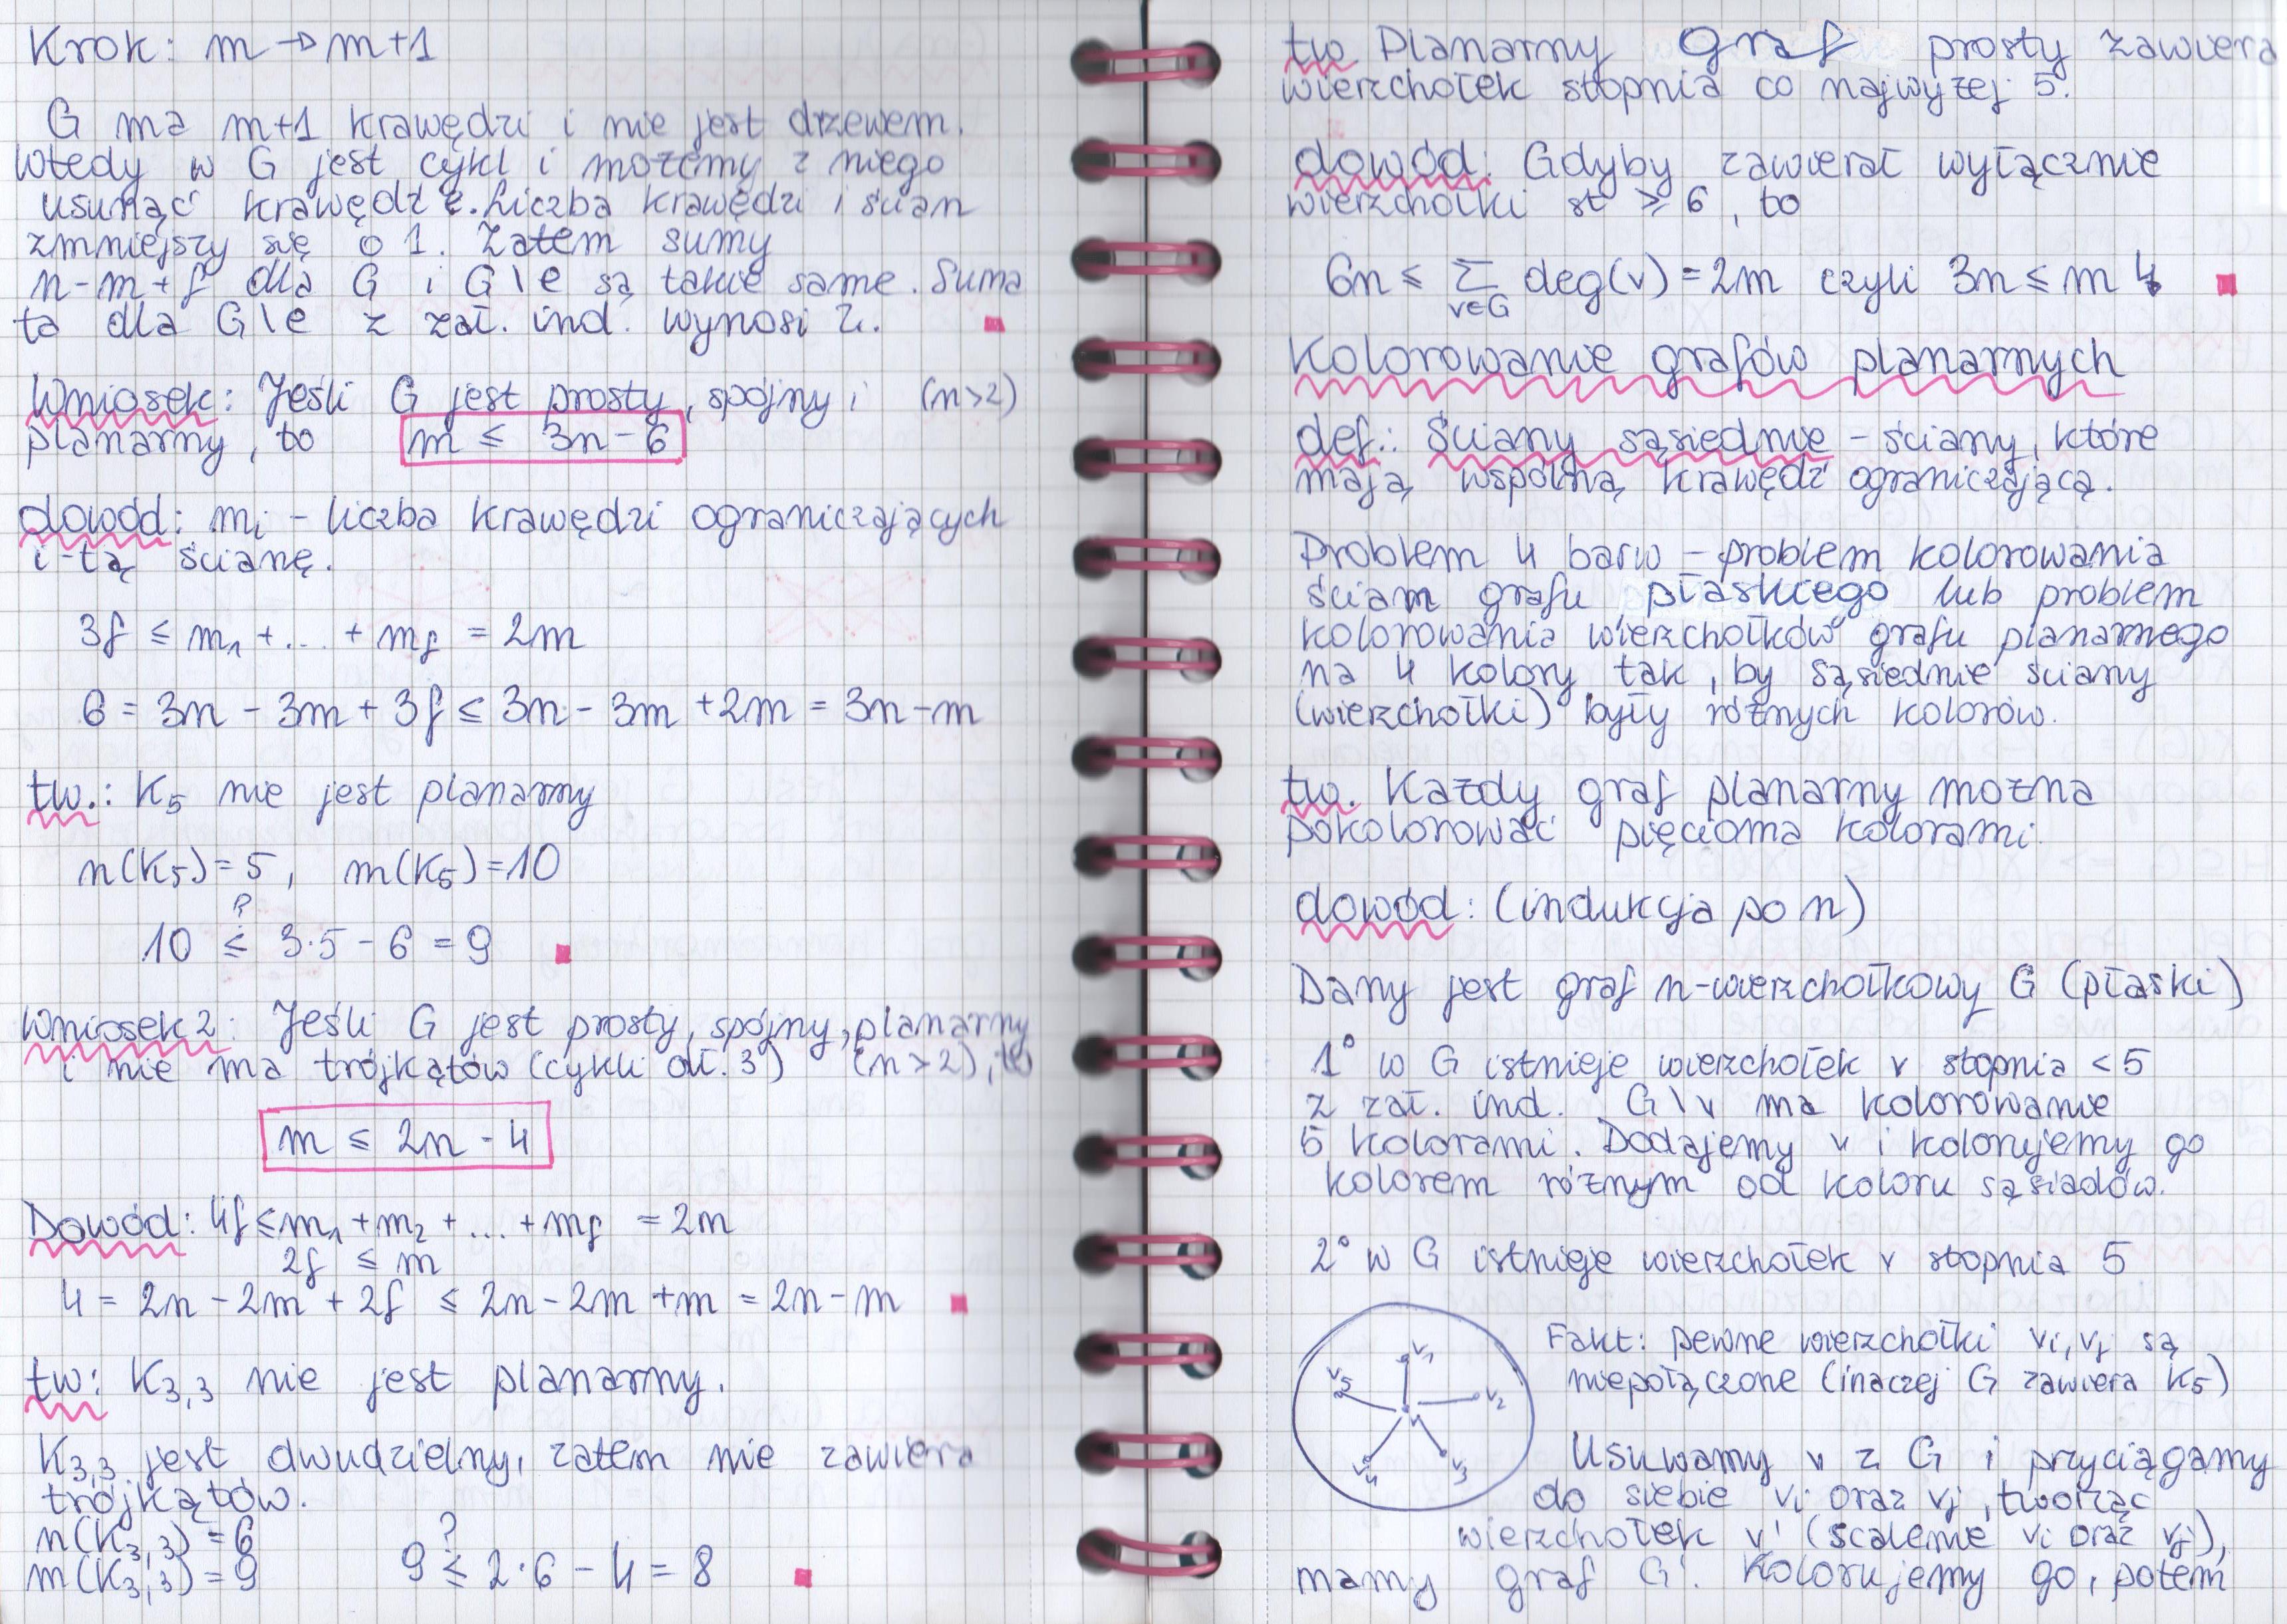 Krok: m → m+1
G ma m+1 krawędzi i nie jest drzewem.
Wtedy w G jest cykl i możemy z niego
usunąć krawędź e. Liczba krawędzi i ścian
zmniejszy się o 1. Zatem sumy
n-m+f dla G i G\e są takie same. Suma
ta dla G\e z zał. ind. wynosi 2.
Wniosek: Jeśli G jest prosty, spójny i (n>2)
planarny, to m ≤ 3n-6
dowód: mi - liczba krawędzi ograniczających
i-tą ścianę.
3f ≤ m₁ + ... + mf = 2m
6 = 3n - 3m + 3f ≤ 3n - 3m + 2m = 3n-m
tw.: K₅ nie jest planarny
n(K₅)=5, m(K₅)=10
?
10 ≤ 3·5 - 6 = 9
Wniosek 2: Jeśli G jest prosty, spójny, planarny
i nie ma trójkątów (cykli dł. 3) (n>2), to
m ≤ 2n - 4
Dowód: 4f ≤ m₁ + m₂ + ... + mf = 2m
2f ≤ m
4 = 2n - 2m + 2f ≤ 2n - 2m + m = 2n - m
tw: K₃,₃ nie jest planarny.
K₃,₃ jest dwudzielny, zatem nie zawiera
trójkątów.
n(K₃,₃) = 6
m(K₃,₃) = 9
?
9 ≤ 2·6 - 4 = 8
tw. Planarny graf prosty zawiera
wierzchołek stopnia co najwyżej 5.
dowód: Gdyby zawierał wyłącznie
wierzchołki st ≥ 6, to
6n ≤ Σ deg(v) = 2m czyli 3n ≤ m ↯
v∈G
Kolorowanie grafów planarnych
def.: Ściany sąsiednie - ściany, które
mają wspólną krawędź ograniczającą.
Problem 4 barw - problem kolorowania
ścian grafu płaskiego lub problem
kolorowania wierzchołków grafu planarnego
na 4 kolory tak, by sąsiednie ściany
(wierzchołki) były różnych kolorów.
tw. Każdy graf planarny można
pokolorować pięcioma kolorami.
dowód: (indukcja po n)
Dany jest graf n-wierzchołkowy G (płaski)
1° w G istnieje wierzchołek v stopnia < 5
z zał. ind. G\v ma kolorowanie
5 kolorami. Dodajemy v i kolorujemy go
kolorem różnym od koloru sąsiadów.
2° w G istnieje wierzchołek v stopnia 5
v₁
v₅
v₂
v
v₄
v₃
Fakt: pewne wierzchołki vi, vj są
niepołączone (inaczej G zawiera K₅)
Usuwamy v z G i przyciągamy
do siebie vi oraz vj, tworząc
wierzchołek v' (scalenie vi oraz vj),
mamy graf G'. Kolorujemy go, potem